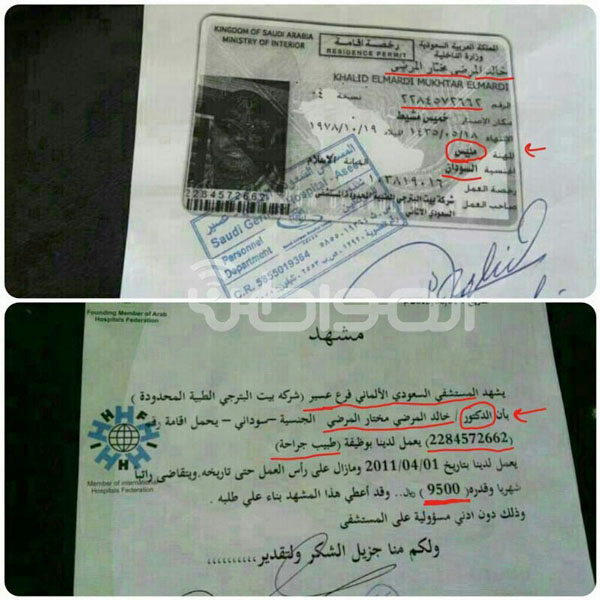 KINGDOM OF SAUDI ARABIA
MINISTRY OF INTERIOR
المملكة العربية السعودية
وزارة الداخلية
رخصة اقامة
RESIDENCE PERMIT
خالد المرضي مختار المرضي
KHALID ELMARDI MUKHTAR ELMARDI
الرقم ٢٢٨٤٥٧٢٦٦٢ نسخة ٠٤
مكان الاصدار خميس مشيط
الانتهاء ١٤٣٥/٠٥/١٨ الميلاد ١٩٧٨/١٠/١٩
المهنة مليس
الجنسية السودان الديانة الاسلام
رخصة العمل
صاحب العمل شركة بيت البترجي الطبية المحدودة المستشفى
السعودي الالماني
2284572662
Personnel
Department
C.R. 5855019364
Founding Member of Arab
Hospitals Federation
مشهد
يشهد المستشفى السعودي الألماني فرع عسير ( شركه بيت البترجي الطبية المحدودة )
بأن الدكتور / خالد المرضي مختار المرضي الجنسية –سوداني – يحمل اقامة رقم
(2284572662) يعمل لدينا بوظيفة ( طبيب جراحة )
يعمل لدينا بتاريخ 2011/04/01 ومازال على رأس العمل حتى تاريخه.ويتقاضى راتبا
شهريا وقدره( 9500 ) ريال.. وقد أعطي هذا المشهد بناء علي طلبه .
وذلك دون ادني مسؤولية على المستشفى
ولكم منا جزيل الشكر ولتقدير،،،،،،،،،،
IHF
Member of International
Hospitals Federation